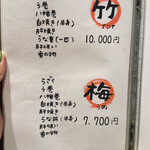 う巻
八幡巻
白焼き(半身)
肝焼き
うな重(一匹)
肝吸い
香の物
竹
10.000円
うざく
う巻
八幡巻
白焼き(半身)
肝焼き
うな丼(半身)
肝吸い
香の物
梅
うめ
7.700円